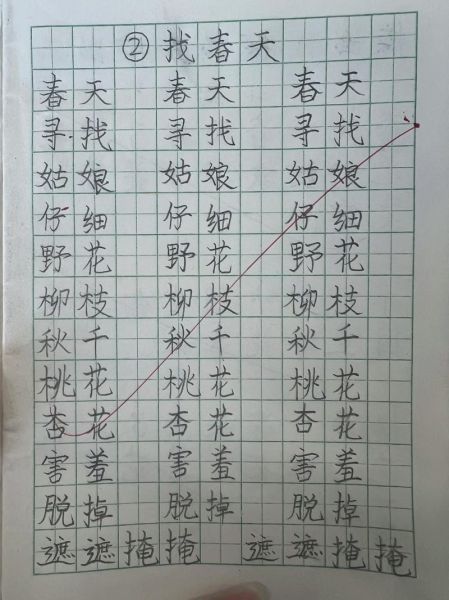 ②找春天
春天 春天 春天
寻找 寻找 寻找
姑娘 姑娘 姑娘
仔细 仔细 仔细
野花 野花 野花
柳枝 柳枝 柳枝
秋千 秋千 秋千
桃花 桃花 桃花
杏花 杏花 杏花
害羞 害羞 害羞
脱掉 脱掉 脱掉
遮遮掩掩 遮遮掩掩